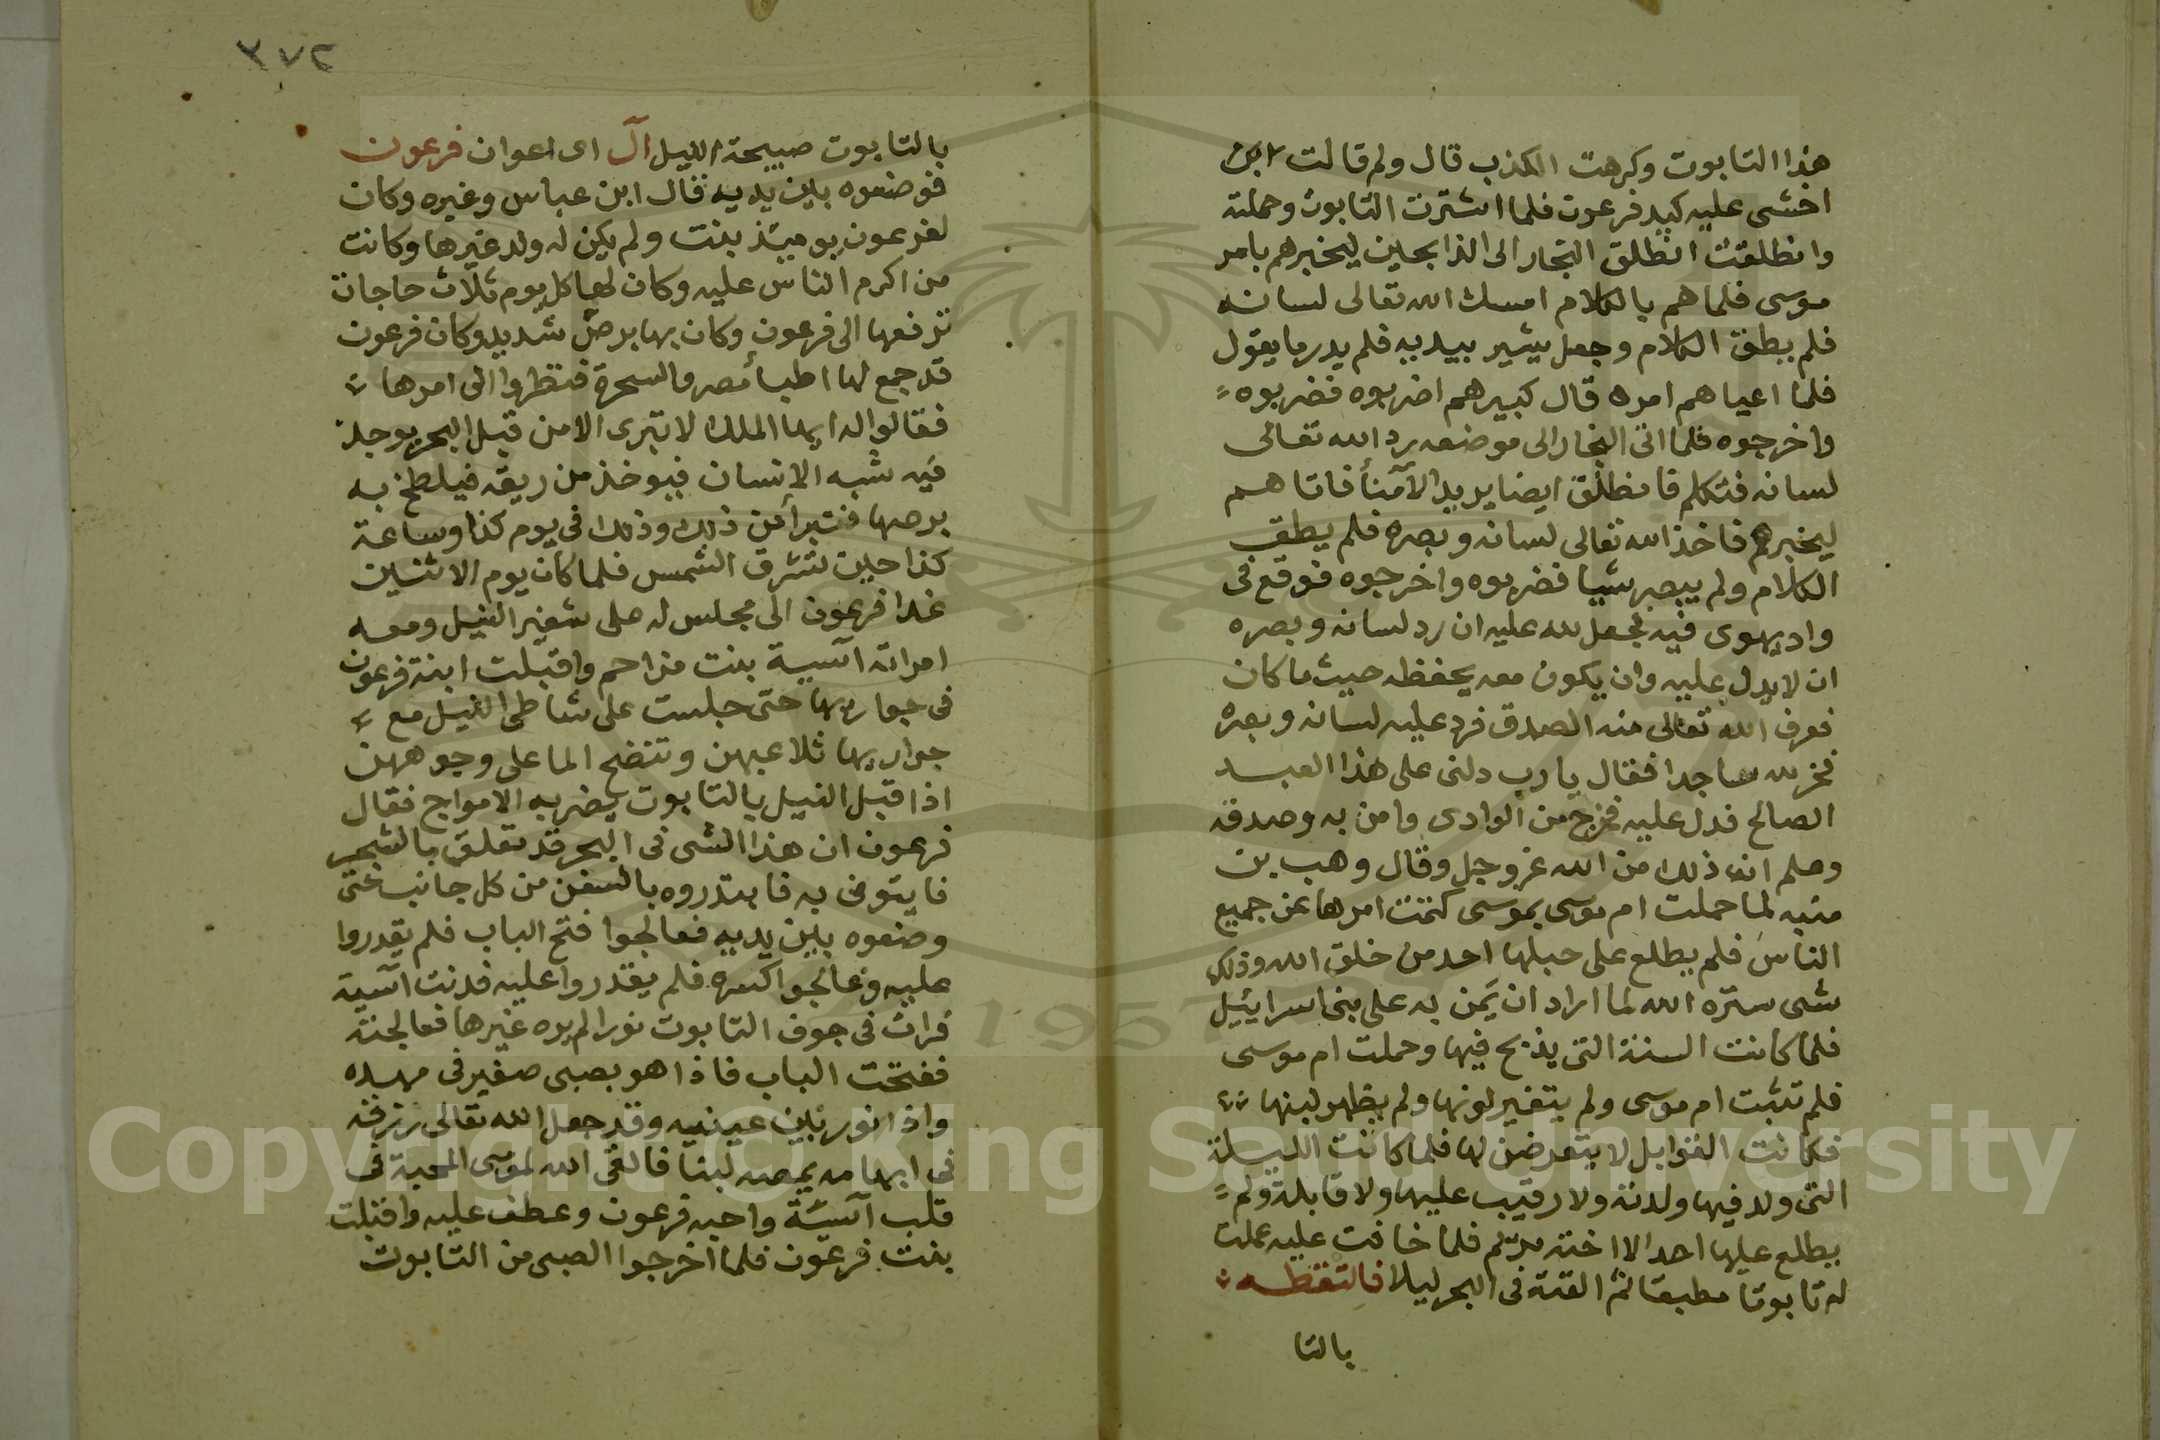 هذا التابوت وكرهت الكذب قال ولم قالت ابن
اخشى عليه كيد فرعون فلما اشترت التابوت وحملته
وانطلقت انطلق النجار الى الذابحين ليخبرهم بامر
موسى فلما هم بالكلام امسك الله تعالى لسانه
فلم يطق الكلام وجعل يشير بيديه فلم يدر ما يقول
فلما اعياهم امره قال كبيرهم اضربوه فضربوه
واخرجوه فلما اتى النجار الى موضعه رد الله تعالى
لسانه فتكلم فانطلق ايضا يريد الامنأ فاتاهم
ليخبرهم فاخذ الله تعالى لسانه وبصره فلم يطق
الكلام ولم يبصر شيا فضربوه واخرجوه فوقع في
واد يهوى فيه فجعل لله عليه ان رد لسانه وبصره
ان لا يدل عليه وان يكون معه يحفظه حيث ما كان
فعرف الله تعالى منه الصدق فرد عليه لسانه وبصره
فخر لله ساجدا فقال يا رب دلنى على هذا العبد
الصالح فدل عليه فخرج من الوادى وامن به وصدقه
وعلم ان ذلك من الله عز وجل وقال وهب بن
منبه لما حملت ام موسى بموسى كتمت امرها عن جميع
الناس فلم يطلع على حبلها احد من خلق الله وذلك
شى ستره الله لما اراد ان يمن به على بنى اسراييل
فلما كانت السنة التى يذبح فيها وحملت ام موسى
فلم تثبت ام موسى ولم يتغير لونها ولم يظهر لبنها
فكانت القوابل لا يتعرضن لها فلما كانت الليلة
التى ولد فيها ولدته ولا رقيب عليها ولا قابلة ولم
يطلع عليها احد الا اخته مريم فلما خافت عليه عملت
له تابوتا مطبقا ثم القته في البحر ليلا فالتقطه
بالتا
٣٧٢
بالتابوت صبيحة الليل آل اى اعوان فرعون
فوضعوه بين يديه قال ابن عباس وغيره وكان
لفرعون يوميذ بنت ولم يكن له ولد غيرها وكانت
من اكرم الناس عليه وكان لها كل يوم ثلاث حاجات
ترفعها الى فرعون وكان بها برص شديد وكان فرعون
قد جمع لها اطبأ مصر والسحرة فنظروا الى امرها
فقالوا له ايها الملك لا تبرى الا من قبل البحر يوجد
فيه شبه الانسان فيوخذ من ريقه فيلطخ به
برصها فتبرأ من ذلك وذلك فى يوم كذا وساعة
كذا حين تشرق الشمس فلما كان يوم الاثنين
غدا فرعون الى مجلس له على شفير النيل ومعه
امراته آسية بنت مزاحم واقبلت ابنة فرعون
فى جواريها حتى جلست على شاطى النيل مع
جواريها تلاعبهن وتنضح الما على وجوههن
اذ اقبل النيل بالتابوت يضربه الامواج فقال
فرعون ان هذا الشى فى البحر قد تعلق بالشجر
فايتونى به فابتدروه بالسفن من كل جانب حتى
وضعوه بين يديه فعالجوا فتح الباب فلم يقدروا
عليه وعالجوا كسره فلم يقدروا عليه فدنت آسية
فرات فى جوف التابوت نورا لم يره غيرها فعالجته
ففتحت الباب فاذا هو بصبى صغير فى مهده
واذا نور بين عينيه وقد جعل الله تعالى رزقه
فى ابهامه يمصه لبنا فالقى الله لموسى المحبة فى
قلب آسية واحبه فرعون وعطف عليه واقبلت
بنت فرعون فلما اخرجوا الصبى من التابوت
Copyright © King Saud University
1957